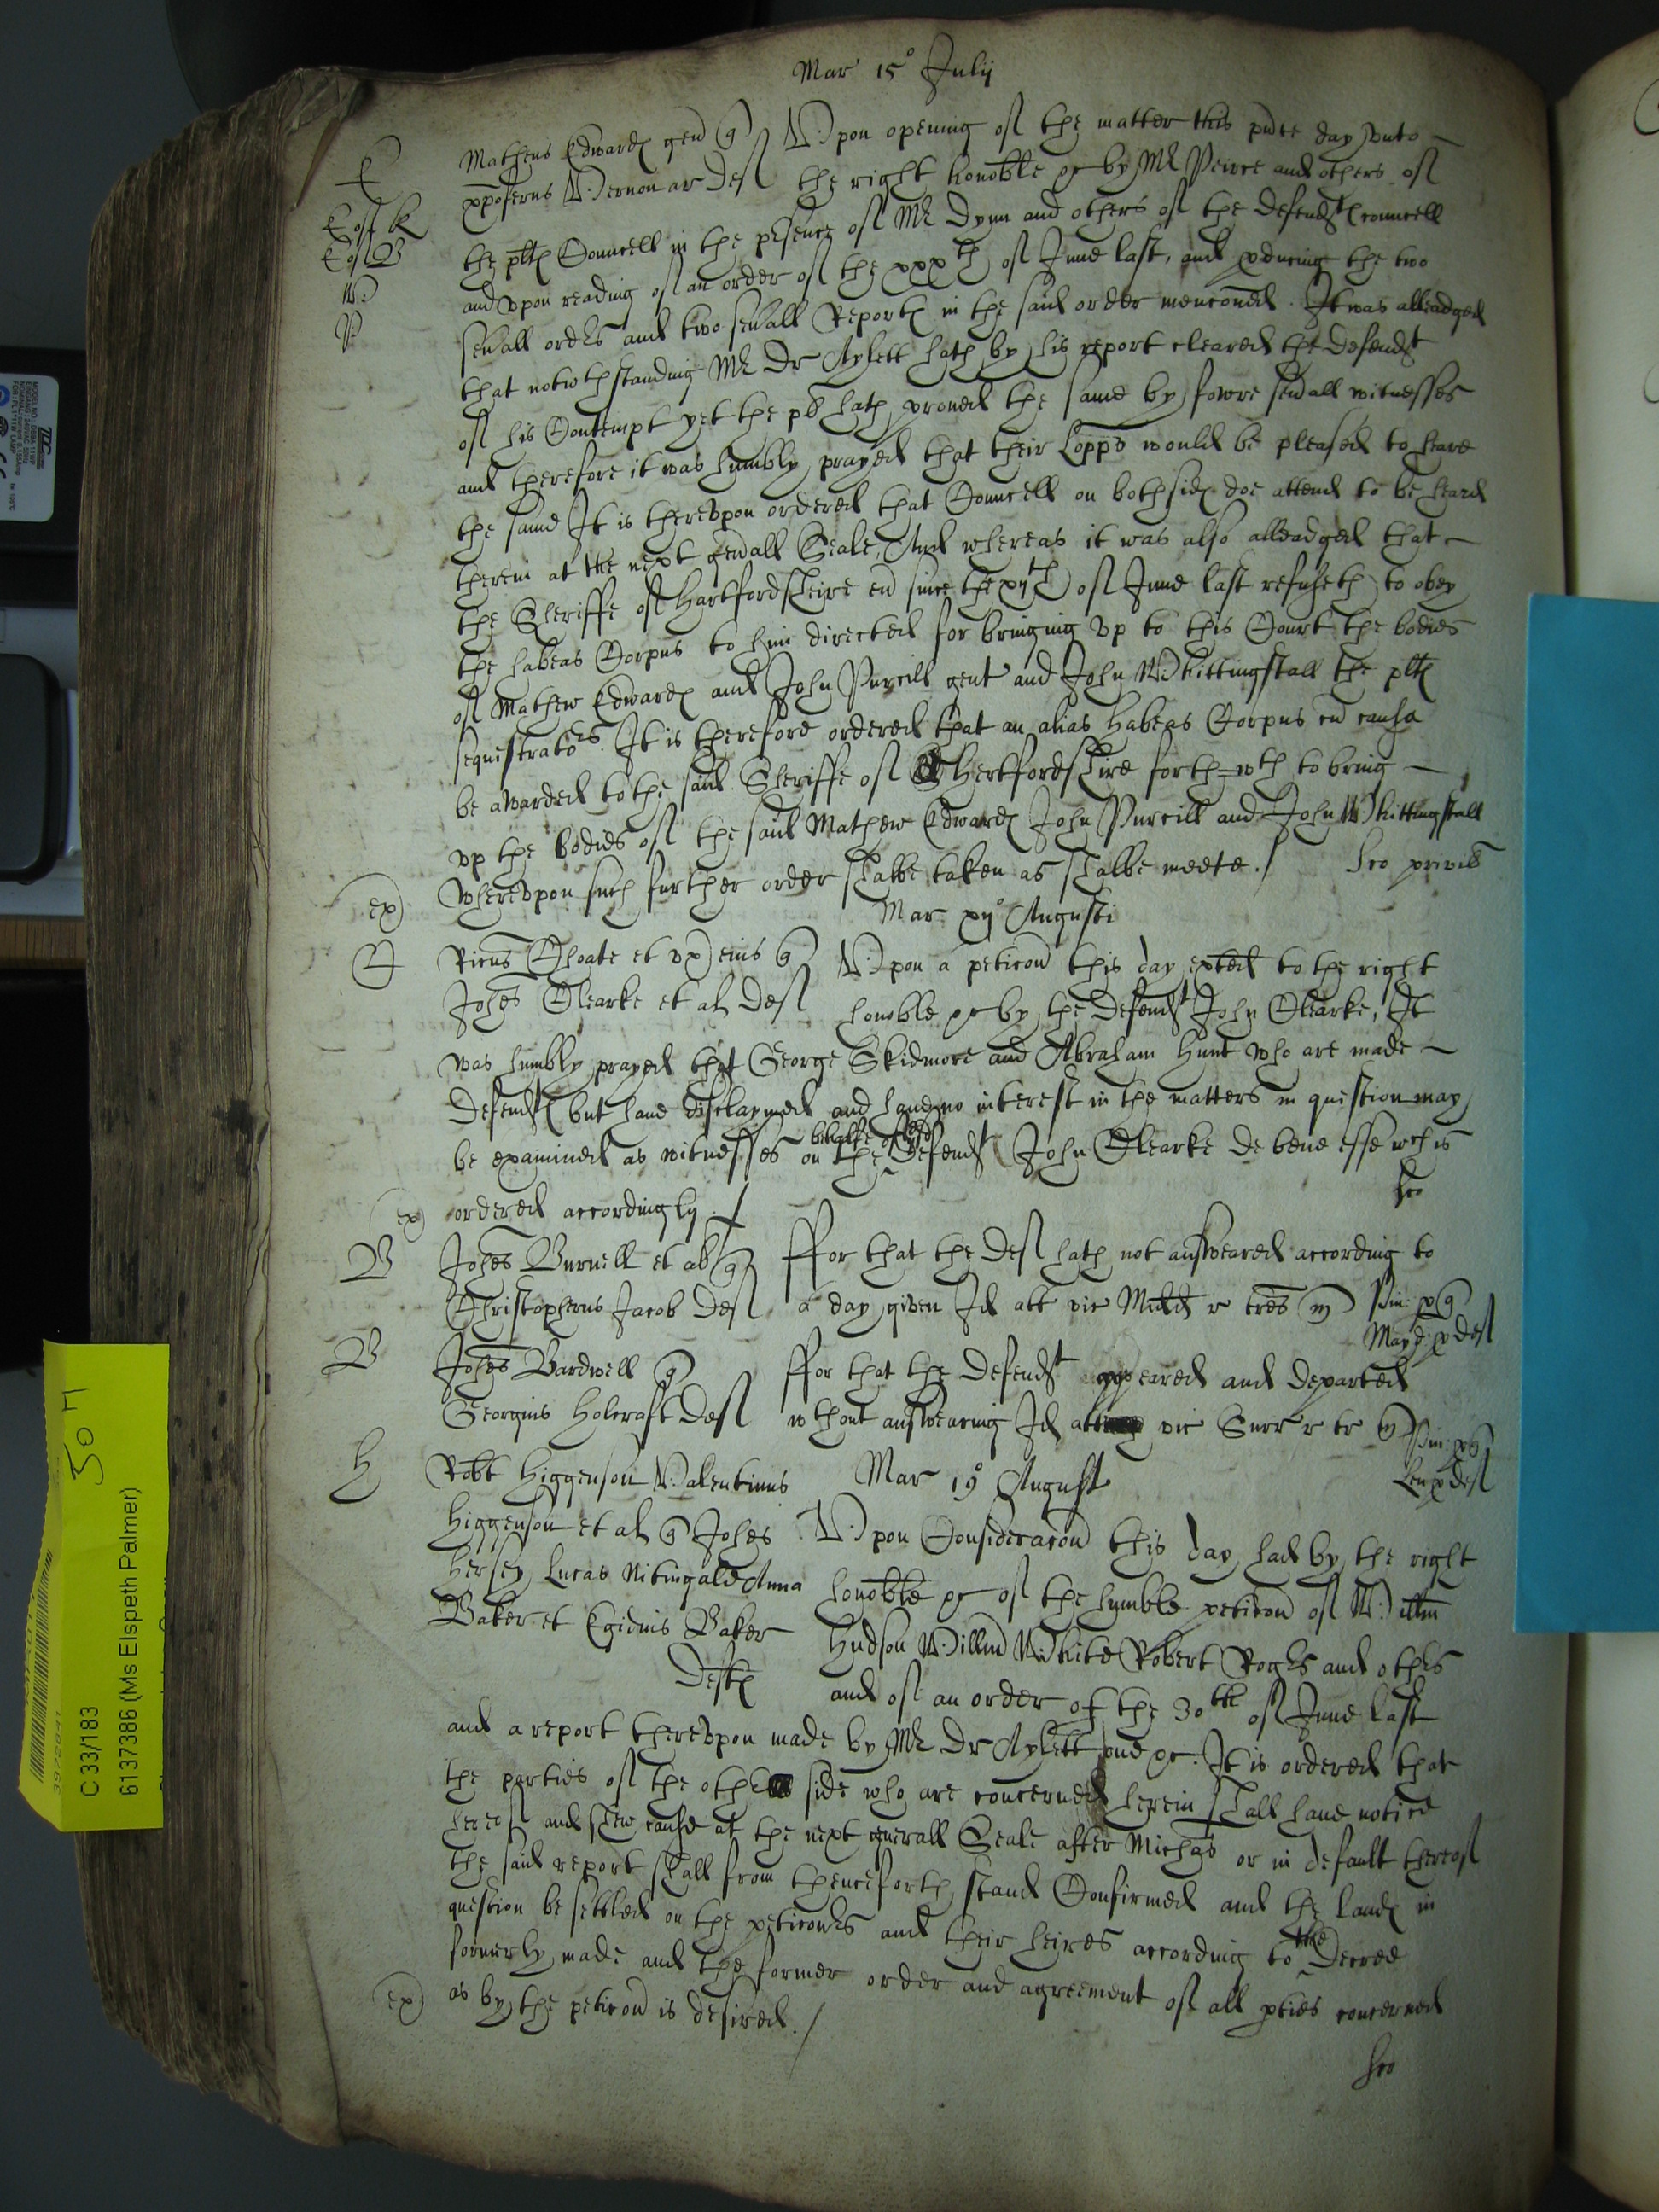 Mar 15° Julij
Matheus Edward gen q Upon opening of the matter this pnte day unto
xpoferus Vernon ar def the right honoble &c by Mr Peirce and others of
the plts Councell in the psence of Mr Dynn and others of the defendts councell
and vpon reading of an order of the xxxth of June last, and pducing the two
seuall ordrs and two seuall Reports in the said order menconed. It was alleadged
that notwthstanding Mr Dr Aylett hath by his report cleared the defendt
of his Contempt yet the pl hath proued the same by fowre seuall witnesses
and therefore it was humbly prayed that their Lopps would be pleased to heare
the same It is therevpon ordered that Councell on both sides doe attend to be heard
therein at the next genall Seale, And whereas it was also alleadged that
the Sheriffe of Hartfordsheire eu since the xijth of June last refuseth to obey
the habeas Corpus to him directed for bringing vp to this Court the bodies
of Mathew Edwards and John Purcill gent and John Whittingstall the plts
sequestrators. It is therefore ordered that an alias Habeas Corpus cu causa
be awarded to the said Sheriffe of Hertfordshire forth=wth to bring
vp the bodies of the said Mathew Edwards John Purcill and John Whittingstall
wherevpon such further order shalbe taken as shalbe meete./
ex
Mar xij° Augusti
Ricus Choate et vx eius q Upon a peticon this day exted to the right
Johes Clearke et al def honoble &c by the defendt John Clearke, It
was humbly prayed that George Skidmore and Abraham Hunt who are made
defendts but haue disclaymed and haue no interest in the matters in question may
behalfe of the
be examined as witnesses on the defendt John Clearke de bene esse wch is
ex ordered accordingly./
B Johes Burnell et al q ffor that the def hath not answeared according to
Christopherus Jacob def a day given Id att vic Midd r tres m
B Johes Bardwell q ffor that the defendt appeared and departed
Georgius Holcraft def wthout answearing Id att vic Surr r tr m
H Robt Higgenson Valentinus Mar 19° August
Higgenson et al q Johes Upon Consideracon this day had by the right
Hersey Lucas Nitingale Anna honoble &c of the humble peticon of Willm
Baker et Egidius Baker Hudson Willm White Robert Rogrs and othrs
Defts and of an order of the 30th of June last
and a report therevpon made by Mr Dr Aylett one &c. It is ordered that
the parties of the other side who are concerned herein shall haue notice
hereof and shew cause at the next generall Seale after Michas or in default thereof
the said report shall from thenceforth stand Confirmed and the lands in
question be setled on the peticonrs and their heires according to the Decree
formerly made and the former order and agreement of all pties concerned
ex as by the peticon is desired./
C 33/183
6137386 (Ms Elspeth Palmer)